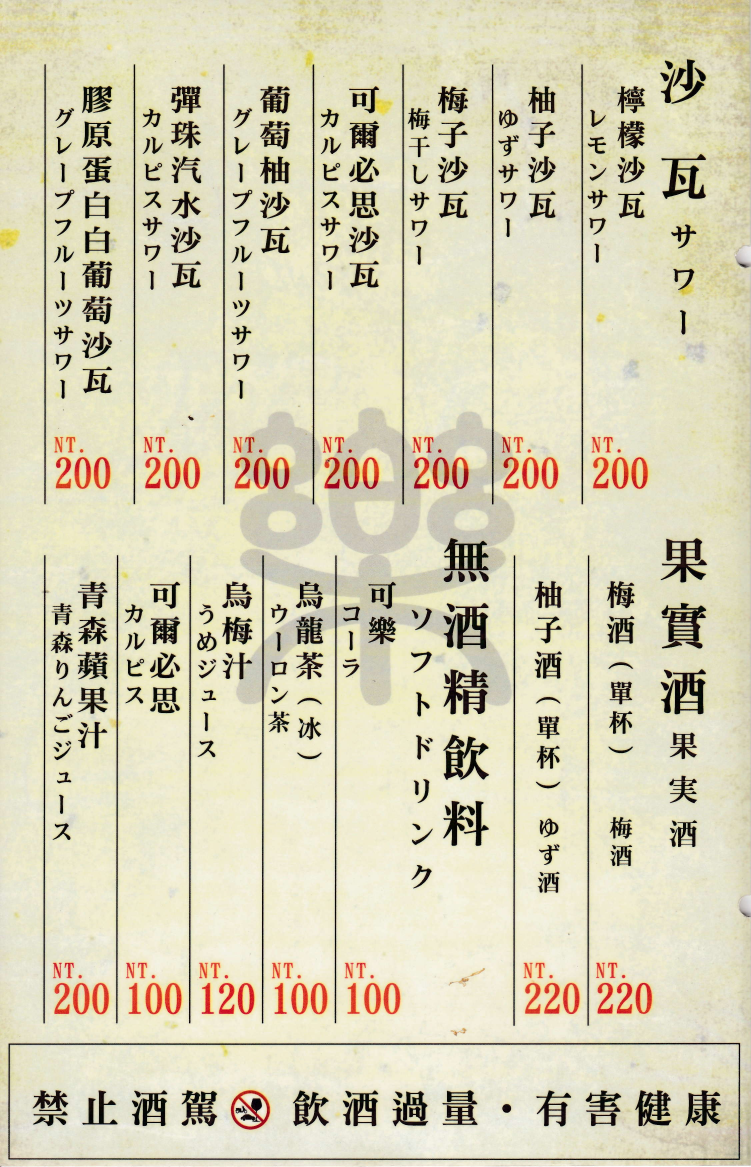 沙瓦 サワー
檸檬沙瓦
レモンサワー
NT.
200
柚子沙瓦
ゆずサワー
NT.
200
梅子沙瓦
梅干しサワー
NT.
200
可爾必思沙瓦
カルピスサワー
NT.
200
葡萄柚沙瓦
グレープフルーツサワー
NT.
200
彈珠汽水沙瓦
カルピスサワー
NT.
200
膠原蛋白白葡萄沙瓦
グレープフルーツサワー
NT.
200
果實酒 果実酒
梅酒(單杯) 梅酒
NT.
220
柚子酒(單杯) ゆず酒
NT.
220
無酒精飲料
ソフトドリンク
可樂
コーラ
NT.
100
烏龍茶(冰)
ウーロン茶
NT.
100
烏梅汁
うめジュース
NT.
120
可爾必思
カルピス
NT.
100
青森蘋果汁
青森りんごジュース
NT.
200
樂
禁止酒駕 飲酒過量・有害健康